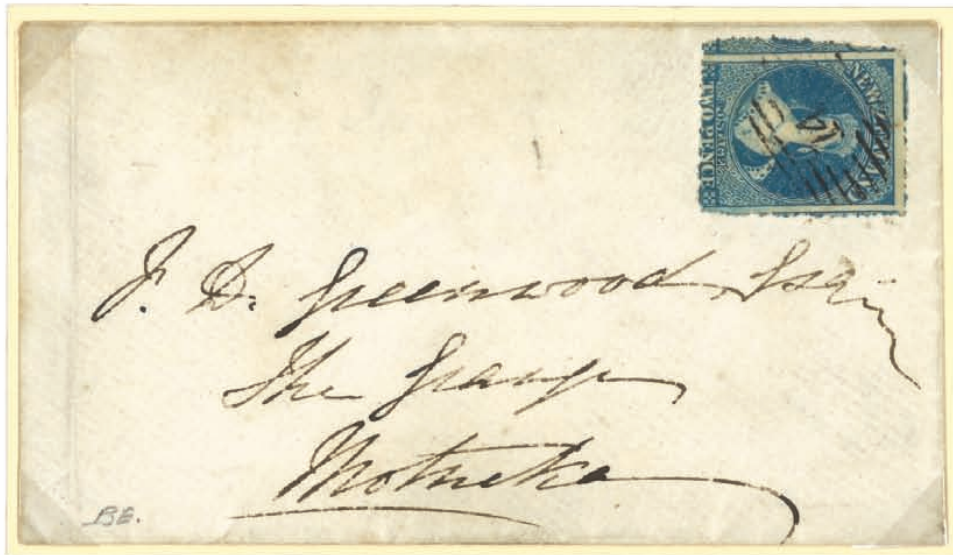 NEW ZEALAND
POSTAGE
TWO PENCE
J. D. Greenwood Esqr
The Grange
Motueka
BE.